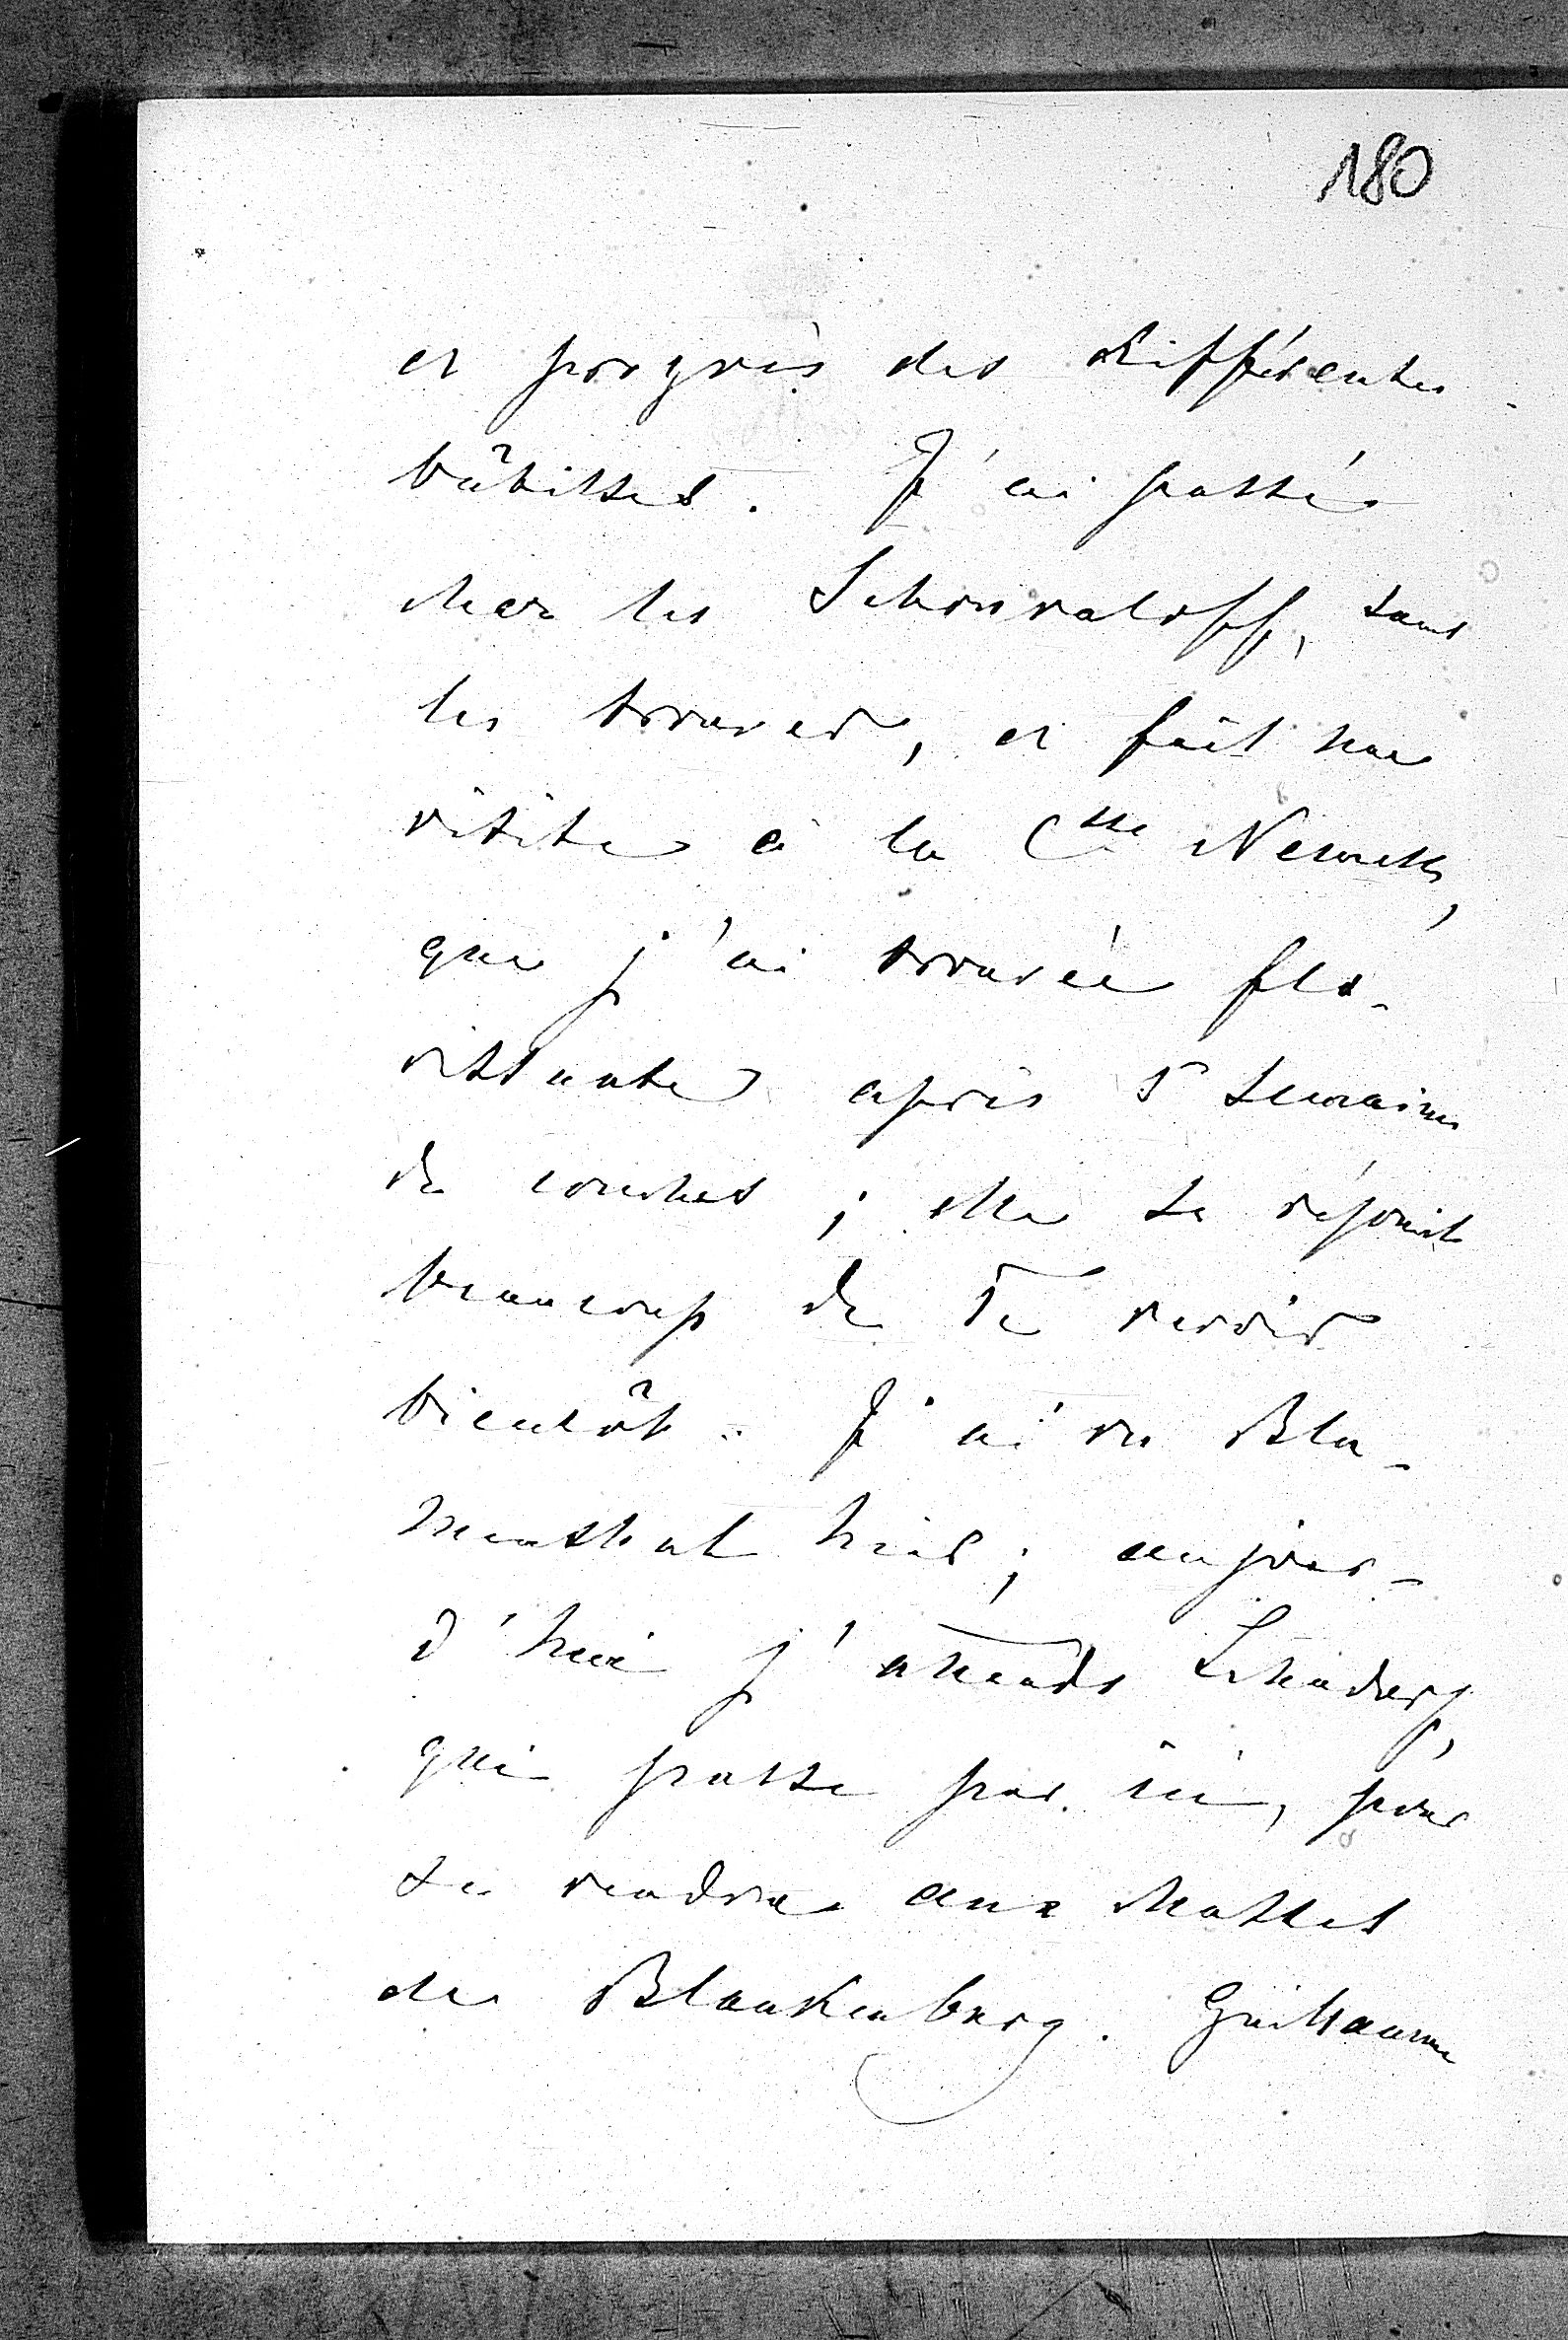 180
et progrès des différentes
bâtisses. J'ai passé
chez les Schouvaloff, sans
les trouver, et fait une
visite à la Csse Nemeth,
que j'ai trouvée flo-
rissante après 5 semaines
de couches ; elle se réjouit
beaucoup de Te revoir
bientôt. J'ai vu Blu-
menthal hier ; aujour-
d'hui j'attends
qui passe par ici, pour
se rendre aux chasses
de Blankenburg. Guillaume